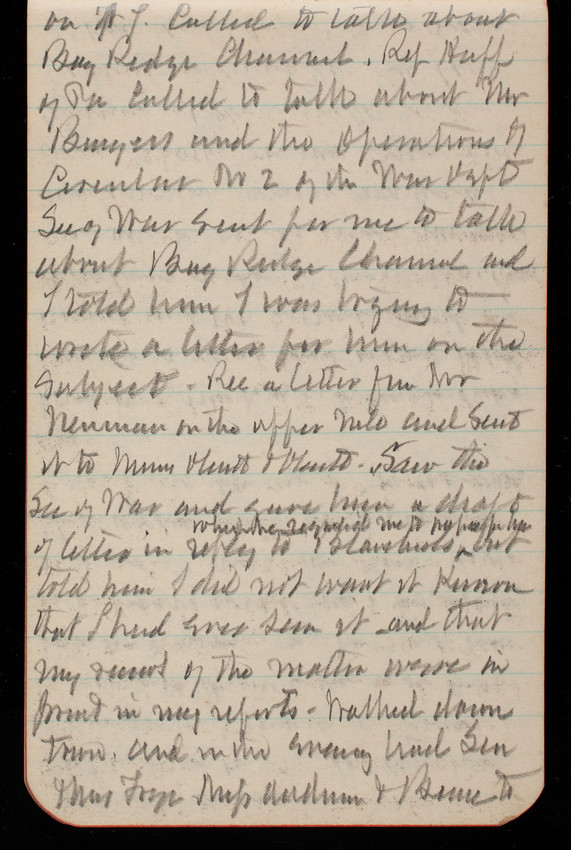 on N. J. Called to talk about
Bay Ridge Channel. Rep Huff
of Pa Called to talk about Mr
Burgess and the operations of
Circular No 2 of the War Dept
Sec of War sent for me to talk
about Bay Ridge Channel and
I told him I was trying to
wrote a letter for him on the
Subject - Rec a letter from Mr
Newman on the upper Nile and Sent
it to - Saw the
Sec of War and gave him a draft
which he required me to prepare for him
of letter in reply to but
told him I did not want it Known
that I had ever seen it and that
my record of the matter were in
print in my reports - Walked down
town and in the evening had Gen
Miss & to